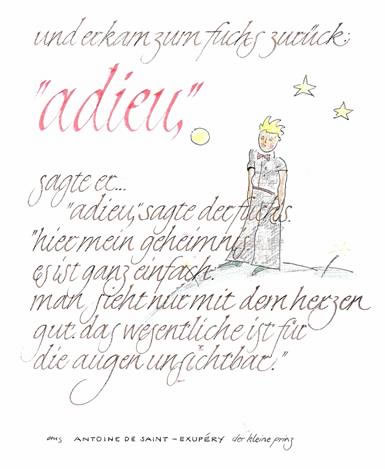 und er kam zum fuchs zurück:
"adieu,"
sagte er...
"adieu," sagte der fuchs.
"hier mein geheimnis.
es ist ganz einfach:
man sieht nur mit dem herzen
gut. das wesentliche ist für
die augen unsichtbar."
aus ANTOINE DE SAINT-EXUPÉRY der kleine prinz